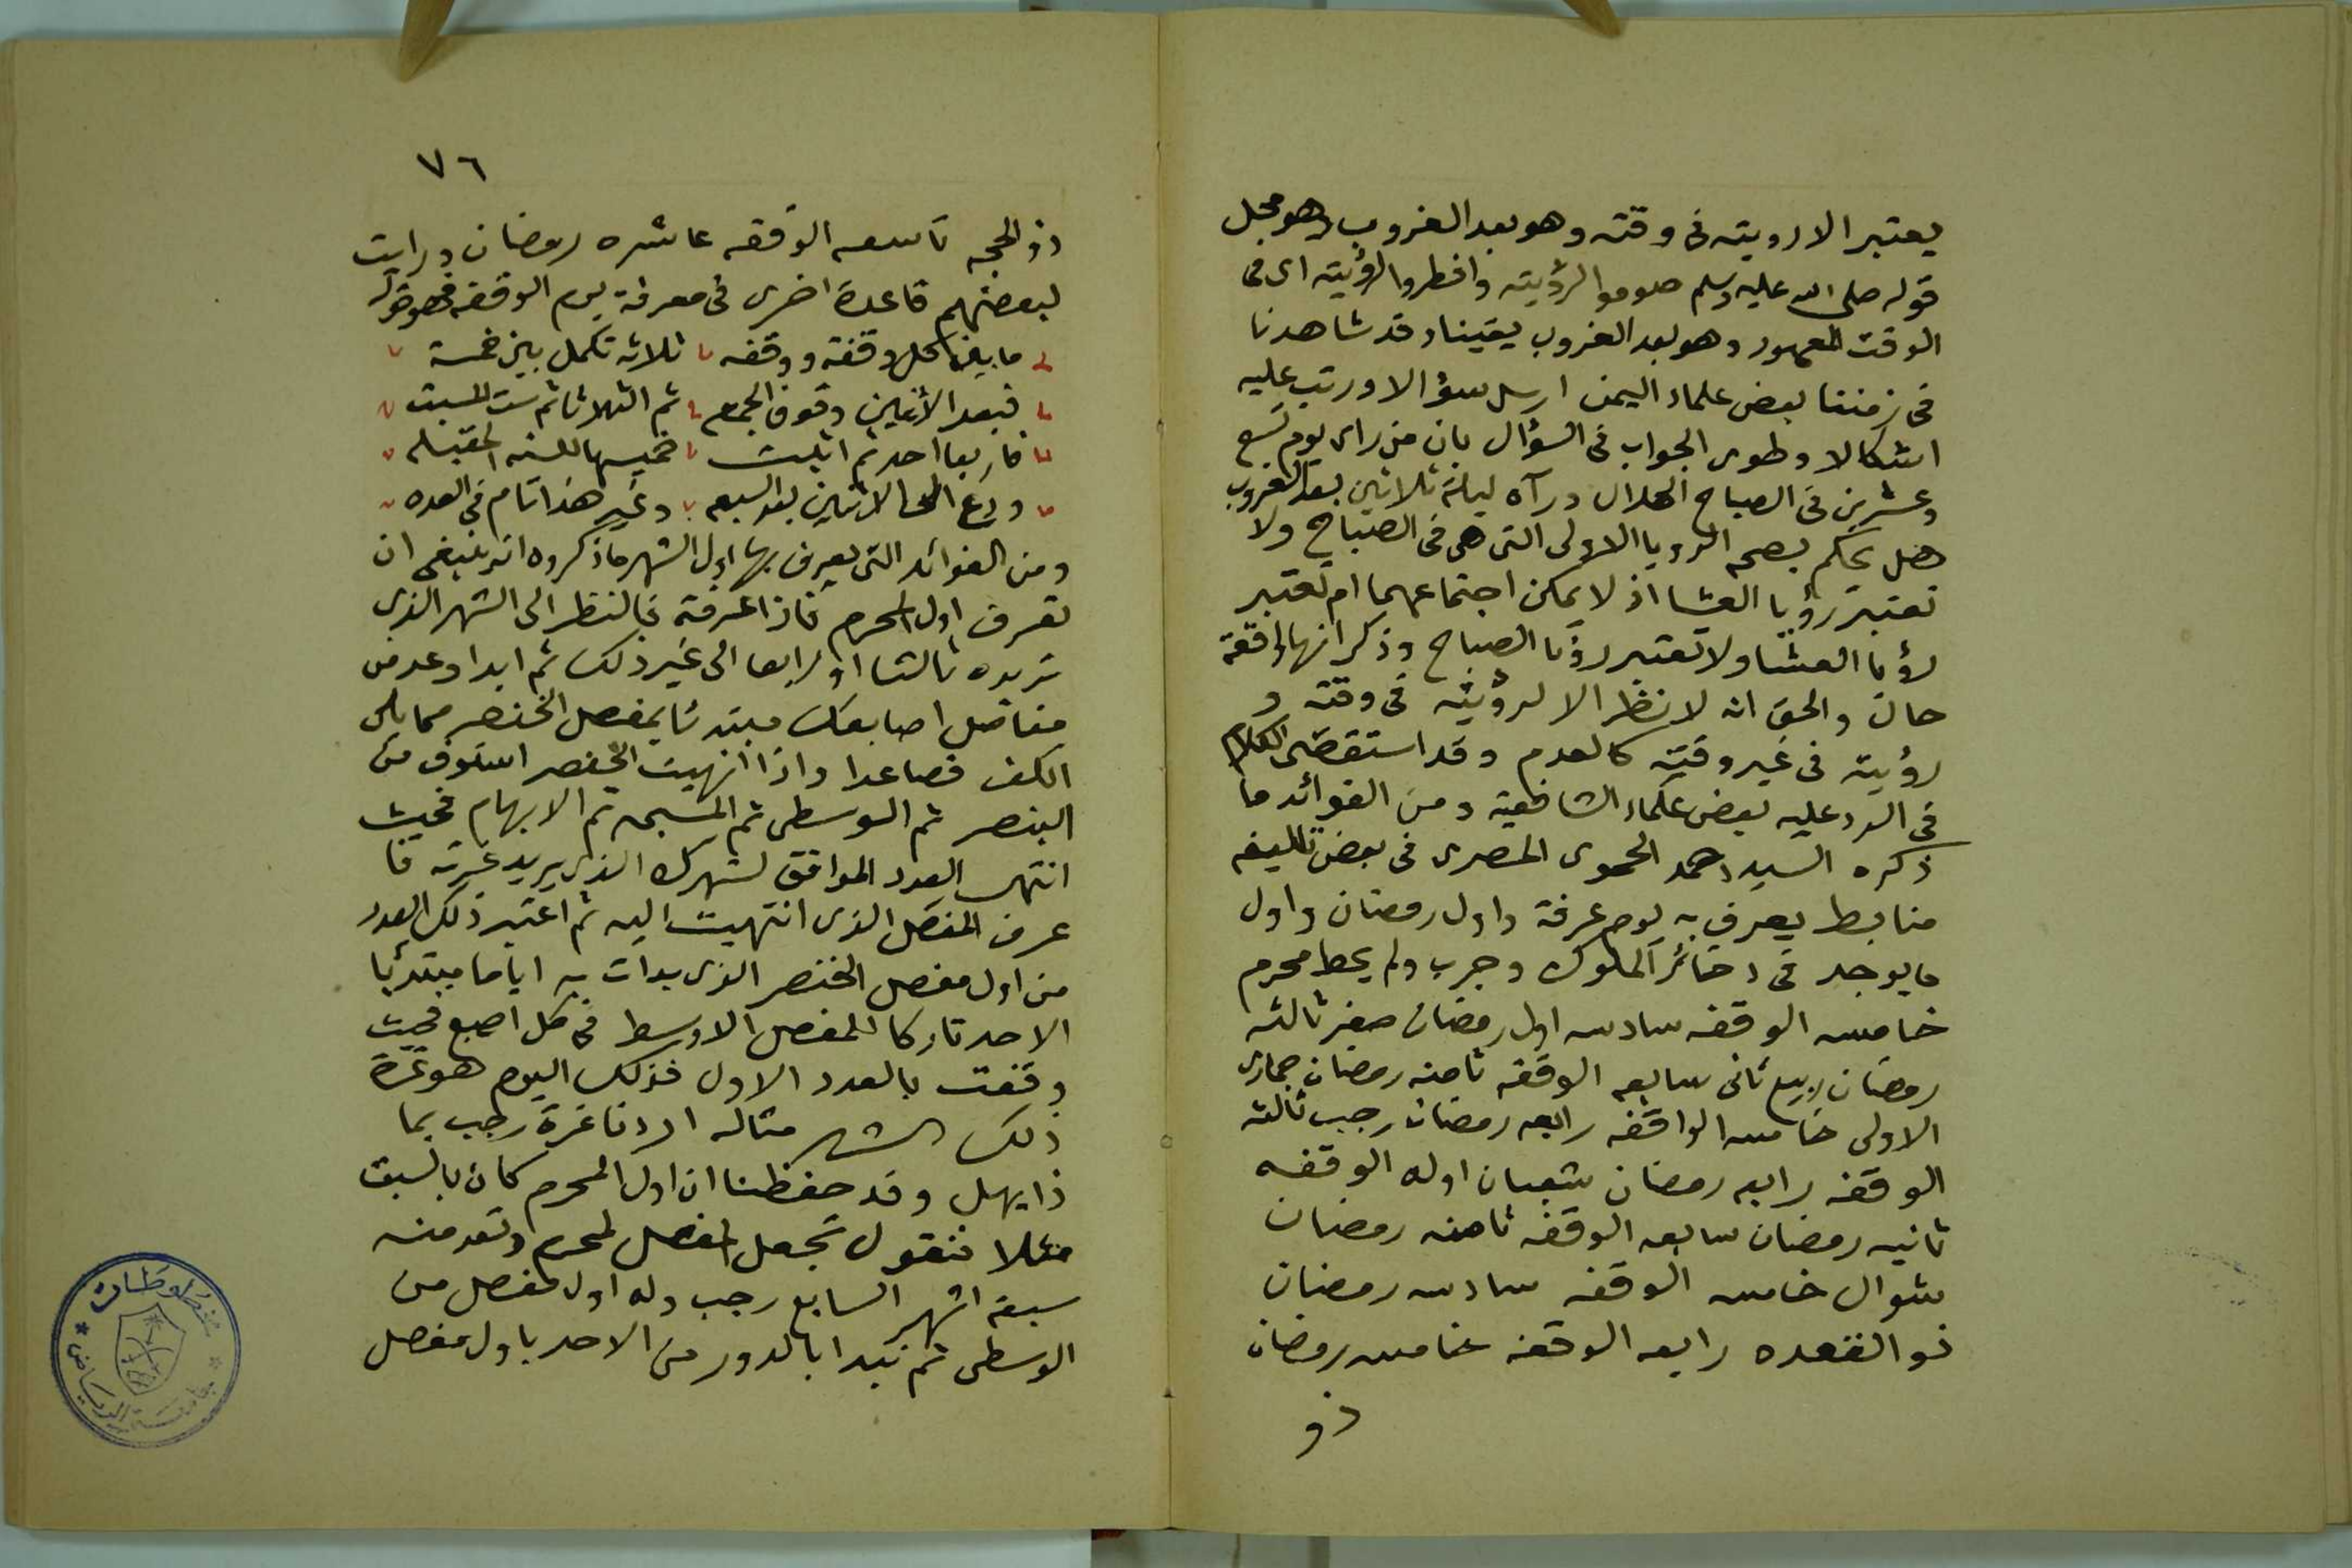 يعتبر الا رويته فى وقته وهو بعد الغروب وهو محمل
قوله صلى الله عليه وسلم صوموا لرؤيته وافطروا لرؤيته اى فى
الوقت المعهود وهو بعد الغروب يقينا وقد شاهدنا
فى زمننا بعض علماء اليمن ارسل سؤالا ورتب عليه
اشكالا وطوى الجواب فى السؤال بان من راى يوم تسع
وعشرين فى الصباح الهلال ورآه ليلة ثلاثين بعد الغروب
هل يحكم بصحه الرويا الاولى التى هى فى الصباح ولا
تعتبر رؤيا العشا اذ لا يمكن اجتماعهما ام تعتبر
رؤيا العشا ولا تعتبر رؤيا الصباح وذكر انها واقعة
حال والحق انه لا نظر الا لرؤيته فى وقته و
رؤيته فى غير وقته كالعدم وقد استقصى الكلام
فى الرد عليه بعض علماء الشافعية ومن الفوائد ما
ذكره السيد احمد الحموى المصرى فى بعض تآليفه
ضابط يعرف به يوم عرفة واول رمضان واول
ما يوجد فى ذخائر الملوك وجرب ولم يخط محرم
خامسه الوقفه سادسه اول رمضان صفر ثالثه
رمضان ربيع ثانى سابعه الوقفه ثامنه رمضان جمادى
الاولى خامسه الواقفه رابعه رمضان رجب ثالثه
الوقفه رابعه رمضان شعبان اوله الوقفه
ثانيه رمضان سابعه الوقفه ثامنه رمضان
شوال خامسه الوقفه سادسه رمضان
ذو القعده رابعه الوقفه خامسه رمضان
ذو
٧٦
ذو الحجه تاسعه الوقفه عاشره رمضان ورايت
لبعضهم قاعدة اخرى فى معرفة يوم الوقفه وهو قوله
ما بين كل وقفة ووقفه ثلاثه تكمل بين خمسة
فبعد الاثنين وقوف الجمعه ثم الثلاثا ثم ست السبت
فاربعا احد ثم اثلث خميسها للسنه المقبله
ودع الى الاثنين بعد السبعه وغير هذا تام فى العده
ومن الفوائد التى يعرف بها اول الشهر ما ذكروه انه ينبغى ان
تعرف اول المحرم فاذا عرفته فالنظر الى الشهر الذى
تريده ثالثا او رابعا الى غير ذلك ثم ابدا وعد من
مفاصل اصابعك مبتدئا بمفصل الخنصر مما يلى
الكف فصاعدا واذا انهيت الخنصر استوف من
البنصر ثم الوسطى ثم المسبحه ثم الابهام فحيث
انتهى العدد الموافق لشهرك الذى يريد غرته فا
عرف المفصل الذى انتهيت اليه ثم اعتبر ذلك العدد
من اول مفصل الخنصر الذى بدات به اياما مبتدئا
الاحد تاركا للمفصل الاوسط فى كل اصبع فحيث
وقفت بالعدد الاول فذلك اليوم هو غرة
ذلك الشهر مثاله اردنا غرة رجب بما
ذا يهل وقد حفظنا ان اول المحرم كان بالسبت
مثلا فنقول تجعل المفصل لمحرم وتعد منه
سبعة اشهر السابع رجب وله اول مفصل من
الوسطى ثم تبدا بالدور من الاحد باول مفصل
مخطوطات
جامعة الرياض